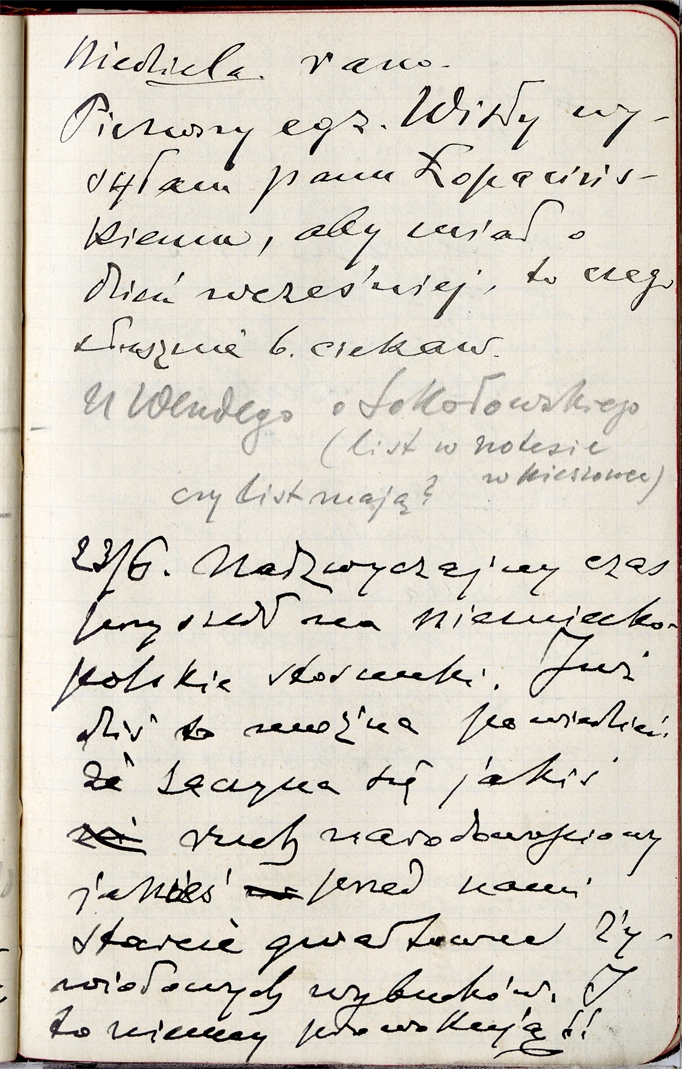 Niedziela. rano.
Pierwszy egz. Wisły wy-
syłam panu Łopaciń-
skiemu, aby miał o
dzień wcześniej, to czego
słusznie b. ciekaw.
U Wendego o Sokołowskiego
(list w notesie
w kieszonce)
czy list mają?
23/6. Nadzwyczajny czas
przyszedł na niemiecko-
polskie stosunki. Już
dziś to można powiedzieć
że zaczyna się jakiś
ruch narodowościowy
jakieś przed nami
starcie gwałtowne ży-
wiołowych wybuchów. I
to niemcy prowokują!!